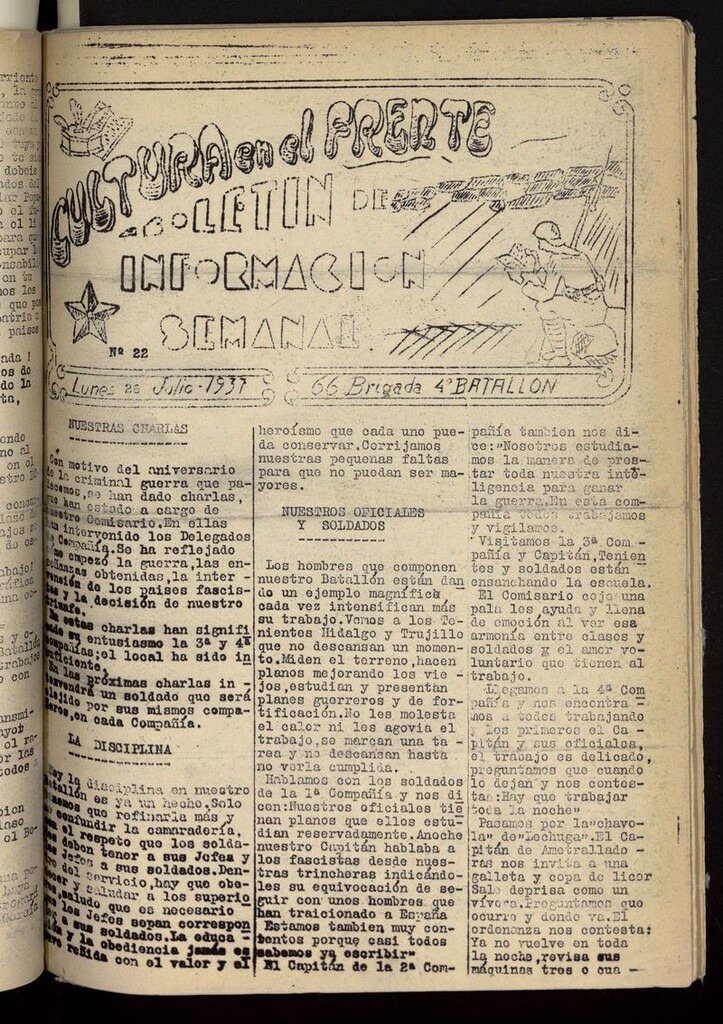 CULTURA en el FRENTE
BOLETIN DE
INFORMACION
SEMANAL
Nº 22
Lunes 26 Julio-1937
66 Brigada 4º BATALLON
NUESTRAS CHARLAS
Con motivo del aniversario
de la criminal guerra que pa-
decemos, se han dado charlas,
que han estado a cargo de
nuestro Comisario. En ellas
han intervenido los Delegados
de Compañía. Se ha reflejado
como empezó la guerra, las en-
señanzas obtenidas, la inter-
vención de los paises fascis-
tas y la decisión de nuestro
triunfo.
En estas charlas han signifi
cado su entusiasmo la 3ª y 4ª
Compañías; el local ha sido in
suficiente.
En las próximas charlas in-
tervendrá un soldado que será
elejido por sus mismos compa-
ñeros, en cada Compañía.
LA DISCIPLINA
Hoy la disciplina en nuestro
Batallón es ya un hecho. Solo
tenemos que refinarla más y
no confundir la camaradería,
con el respeto que los solda-
dos deben tener a sus Jefes y
los Jefes a sus soldados. Den-
tro del servicio, hay que obe-
decer y saludar a los superio
res, saludo que es necesario
que los Jefes sepan correspon
der a sus soldados. La educa-
ción y la obediencia jamás es
tuvo reñida con el valor y el
heroísmo que cada uno pue-
da conservar. Corrijamos
nuestras pequeñas faltas
para que no puedan ser ma-
yores.
NUESTROS OFICIALES
Y SOLDADOS
Los hombres que componen
nuestro Batallón están dan
do un ejemplo magnífico
cada vez intensifican más
su trabajo. Vemos a los Te-
nientes Hidalgo y Trujillo
que no descansan un momen-
to. Miden el terreno, hacen
planos mejorando los vie-
jos, estudian y presentan
planes guerreros y de for-
tificación. No les molesta
el calor ni les agovia el
trabajo, se marcan una ta-
rea y no descansan hasta
no verla cumplida.
Hablamos con los soldados
de la 1ª Compañía y nos di
cen: Nuestros oficiales tie
nen planos que ellos estu-
dian reservadamente. Anoche
nuestro Capitán hablaba a
los fascistas desde nues-
tras trincheras indicándo-
les su equivocación de se-
guir con unos hombres que
han traicionado a España
Estamos tambien muy con-
tentos porque casi todos
sabemos ya escribir"
El Capitán de la 2ª Com-
pañía tambien nos di-
ce: "Nosotros estudia-
mos la manera de pres-
tar toda nuestra inte-
ligencia para ganar
la guerra. En esta com-
pañía todos trabajamos
y vigilamos.
Visitamos la 3ª Com
pañía y Capitán, Tenien
tes y soldados están
ensanchando la escuela.
El Comisario coje una
pala les ayuda y llena
de emoción al ver esa
armonía entre clases y
soldados y el amor vo-
luntario que tienen al
trabajo.
Llegamos a la 4ª Com
pañía y nos encontra -
mos a todos trabajando
y los primeros el Ca-
pitán y sus oficiales,
el trabajo es delicado,
preguntamos que cuando
lo dejan y nos contes-
tan: Hay que trabajar
toda la noche"
Pasamos por la "chavo-
la" de "Lechuga". El Ca-
pitán de Ametrallado -
ras nos invita a una
galleta y copa de licor
Sale deprisa como un
vívora. Preguntamos que
ocurre y donde va. El
ordenanza nos contesta:
Ya no vuelve en toda
la noche, revisa sus
máquinas tres o cua -